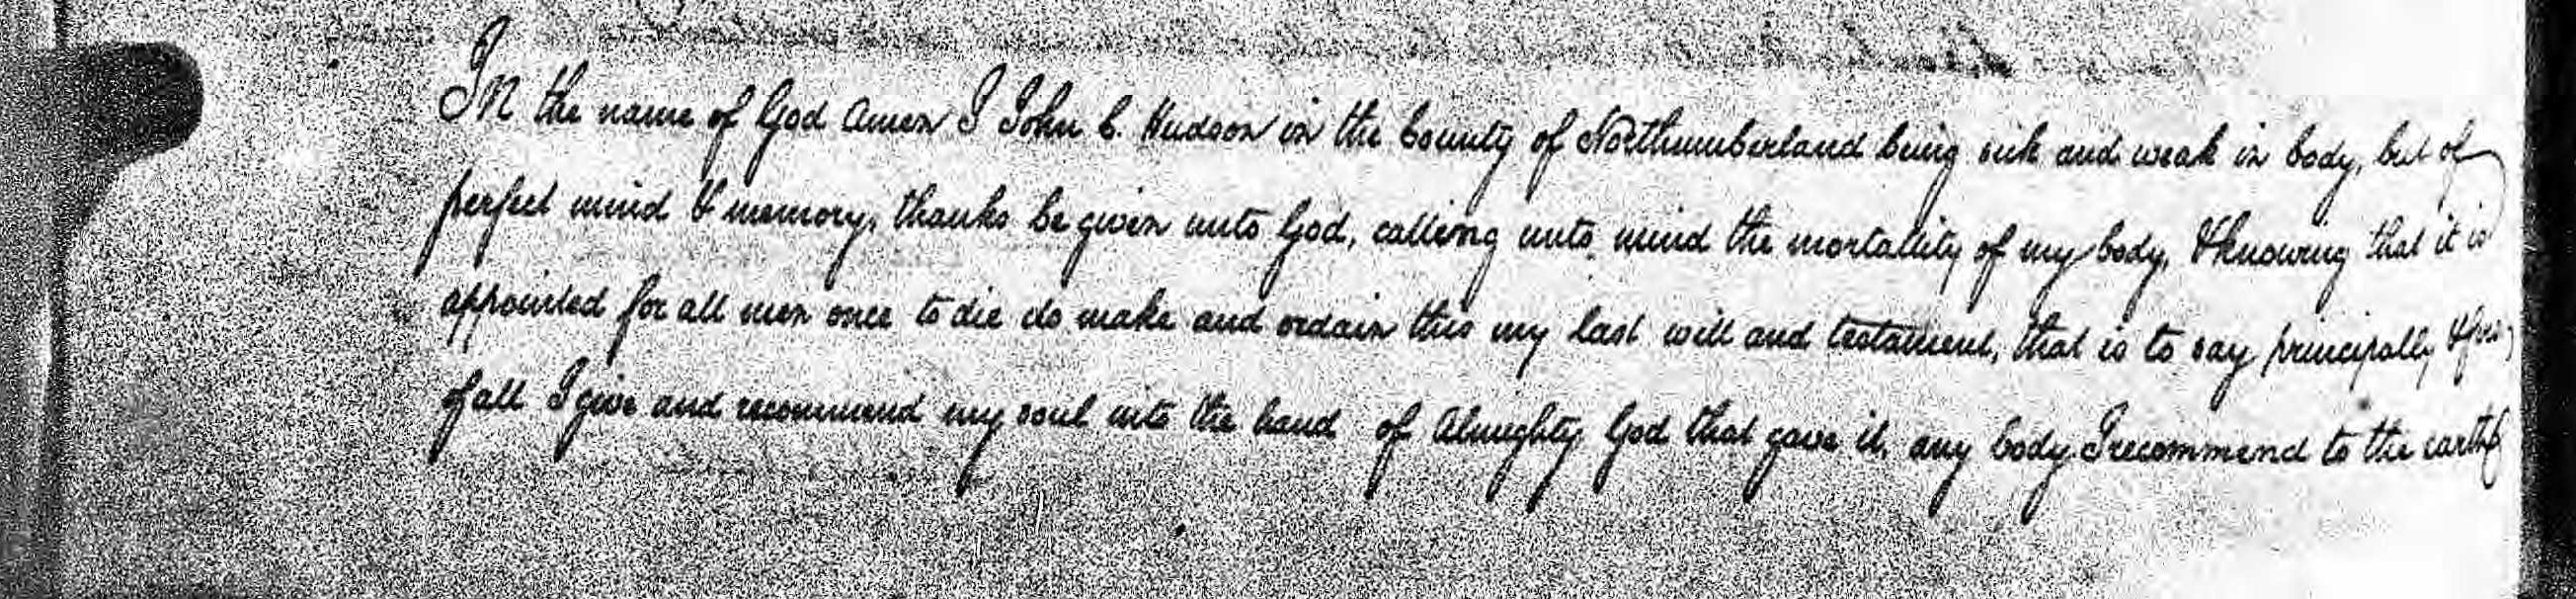 In the name of God Amen I John C. Hudson in the County of Northumberland being sick and weak in body, but of
perfect mind & memory, thanks be given unto God, calling unto mind the mortallity of my body, & knowing that it is
appointed for all men once to die do make and ordain this my last will and testament, that is to say principally &
of all I give and recommend my soul into the hand of Almighty God that gave it, any body I recommend to the earth